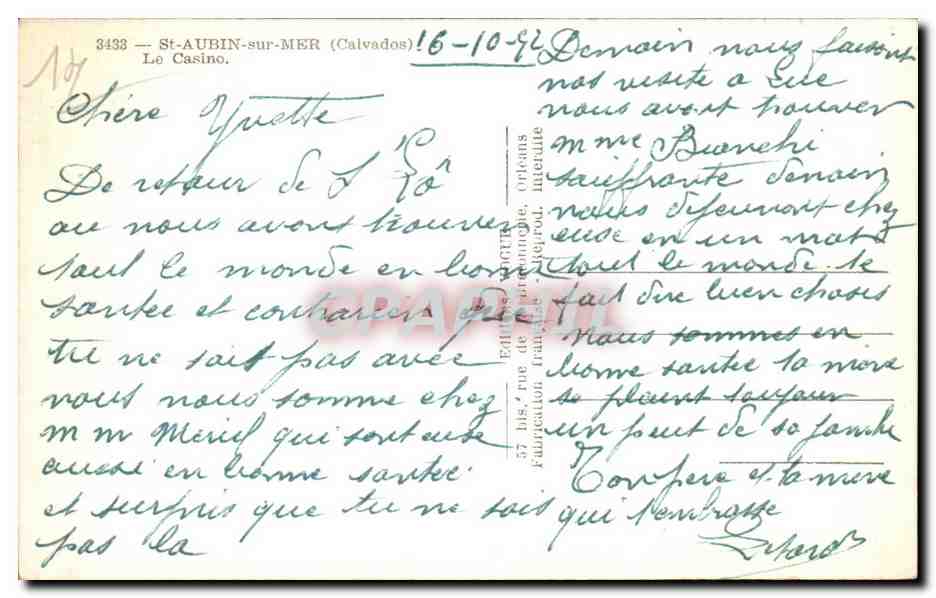 3433 — St-AUBIN-sur-MER (Calvados)
Le Casino.
16-10-52
Chère Yvette
De retour de St Lô
ou nous avont trouver
tout le monde en bonne
santee et contrarien que
tu ne soit pas avec
nous nous somme chez
m m qui sont euse
aussi en bonne santee
et surpris que tu ne sois
pas la
Demain nous faisont
nos visite a Luc
nous avont trouver
mme Bianchi
souffrante demain
nous dejeunont chez
euse en un mot
tout le monde te
fait dire bien choses
Nous sommes en
bonne santee ta mere
se plaint toujour
un peut de sa jambe
Ton pere et ta mere
qui t'embrasse
Editions
57 bis, rue de Orléans
Fabrication française - Reprod. Interdite
CPAPHIL